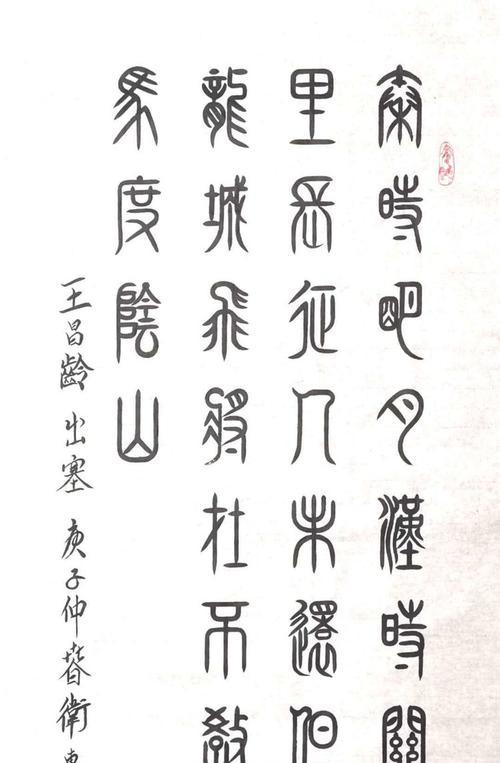 秦時明月漢時關
里長征人未還但
龍城飛將在不教
馬度陰山
王昌齡 出塞 庚子仲春衛